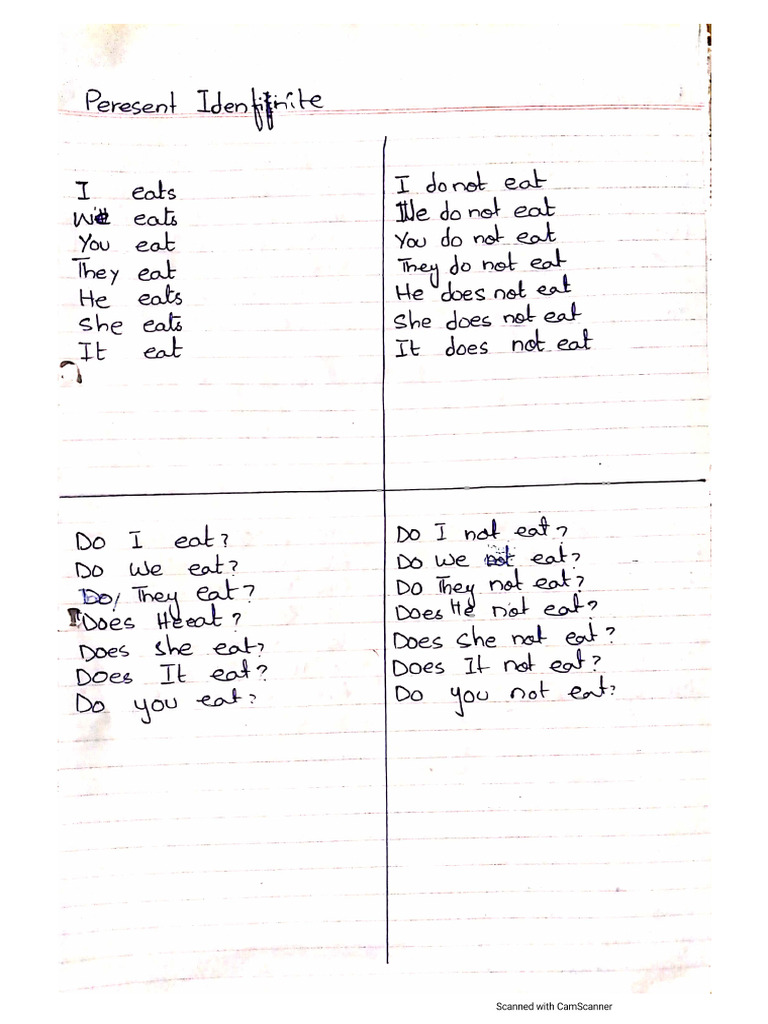 Peresent Idenfifinite
I eats
We eats
You eat
They eat
He eats
She eats
It eat
I do not eat
We do not eat
You do not eat
They do not eat
He does not eat
She does not eat
It does not eat
Do I eat?
Do We eat?
Do, They eat?
Does He eat?
Does She eat?
Does It eat?
Do you eat?
Do I not eat?
Do We not eat?
Do They not eat?
Does He not eat?
Does She not eat?
Does It not eat?
Do you not eat?
Scanned with CamScanner